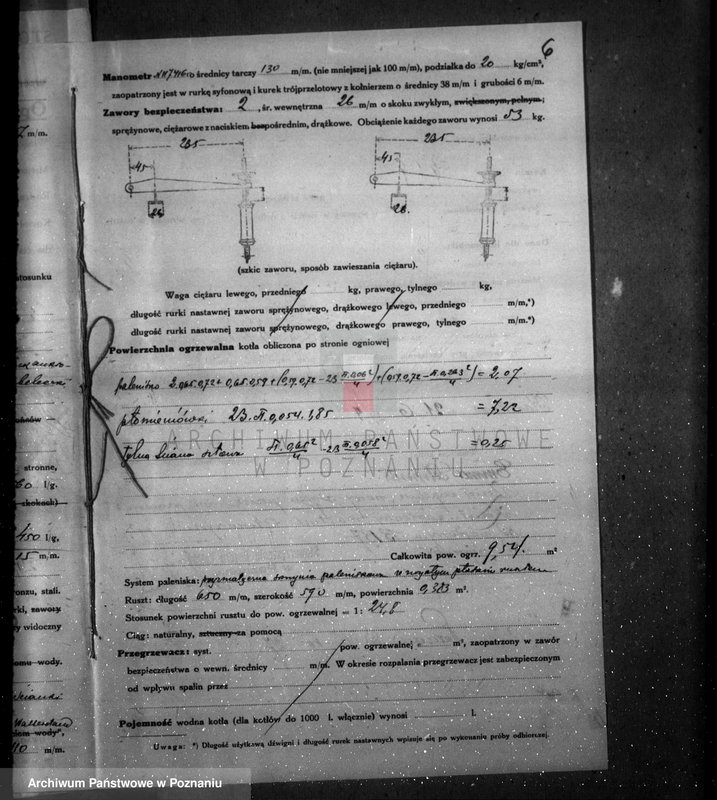 6
Manometr N 117416 o średnicy tarczy 130 m/m. (nie mniejszej jak 100 m/m), podziałka do 20 kg/cm²,
zaopatrzony jest w rurkę syfonową i kurek trójprzelotowy z kołnierzem o średnicy 38 m/m i grubości 6 m/m.
Zawory bezpieczeństwa: 2, śr. wewnętrzna 26 m/m o skoku zwykłym, zwiększonym, pełnym;
sprężynowe, ciężarowe z naciskiem bezpośrednim, drążkowe. Obciążenie każdego zaworu wynosi 53 kg.
235
235
45
45
26
26
(szkic zaworu, sposób zawieszania ciężaru).
Waga ciężaru lewego, przedniego kg, prawego, tylnego kg,
długość rurki nastawnej zaworu sprężynowego, drążkowego lewego, przedniego m/m,*)
długość rurki nastawnej zaworu sprężynowego, drążkowego prawego, tylnego m/m.*)
Powierzchnia ogrzewalna kotła obliczona po stronie ogniowej
= 2,07
płomieniówki 23.π.0,054.1,85 = 7,22
tylna ściana = 0,25
ARCHIWUM PAŃSTWOWE
W POZNANIU
Całkowita pow. ogrz. 9,54 m²
System paleniska:
Ruszt: długość 650 m/m, szerokość 590 m/m, powierzchnia 0,383 m².
Stosunek powierzchni rusztu do pow. ogrzewalnej = 1: 24,8
Ciąg: naturalny, sztuczny za pomocą
Przegrzewacz: syst. pow. ogrzewalnej = m², zaopatrzony w zawór
bezpieczeństwa o wewn. średnicy m/m. W okresie rozpalania przegrzewacz jest zabezpieczony
od wpływu spalin przez
Pojemność wodna kotła (dla kotłów do 1000 l. włącznie) wynosi l.
Uwaga: *) Długość użytkową dźwigni i długość rurek nastawnych wpisuje się po wykonaniu próby odbiorczej.
m/m.
stosunku
stronne,
60 l/g.
skokach)
450 l/g,
15 m/m.
onzu, stali.
rki, zawory
y widoczny
omu wody.
iom wody",
10 m/m.
Archiwum Państwowe w Poznaniu